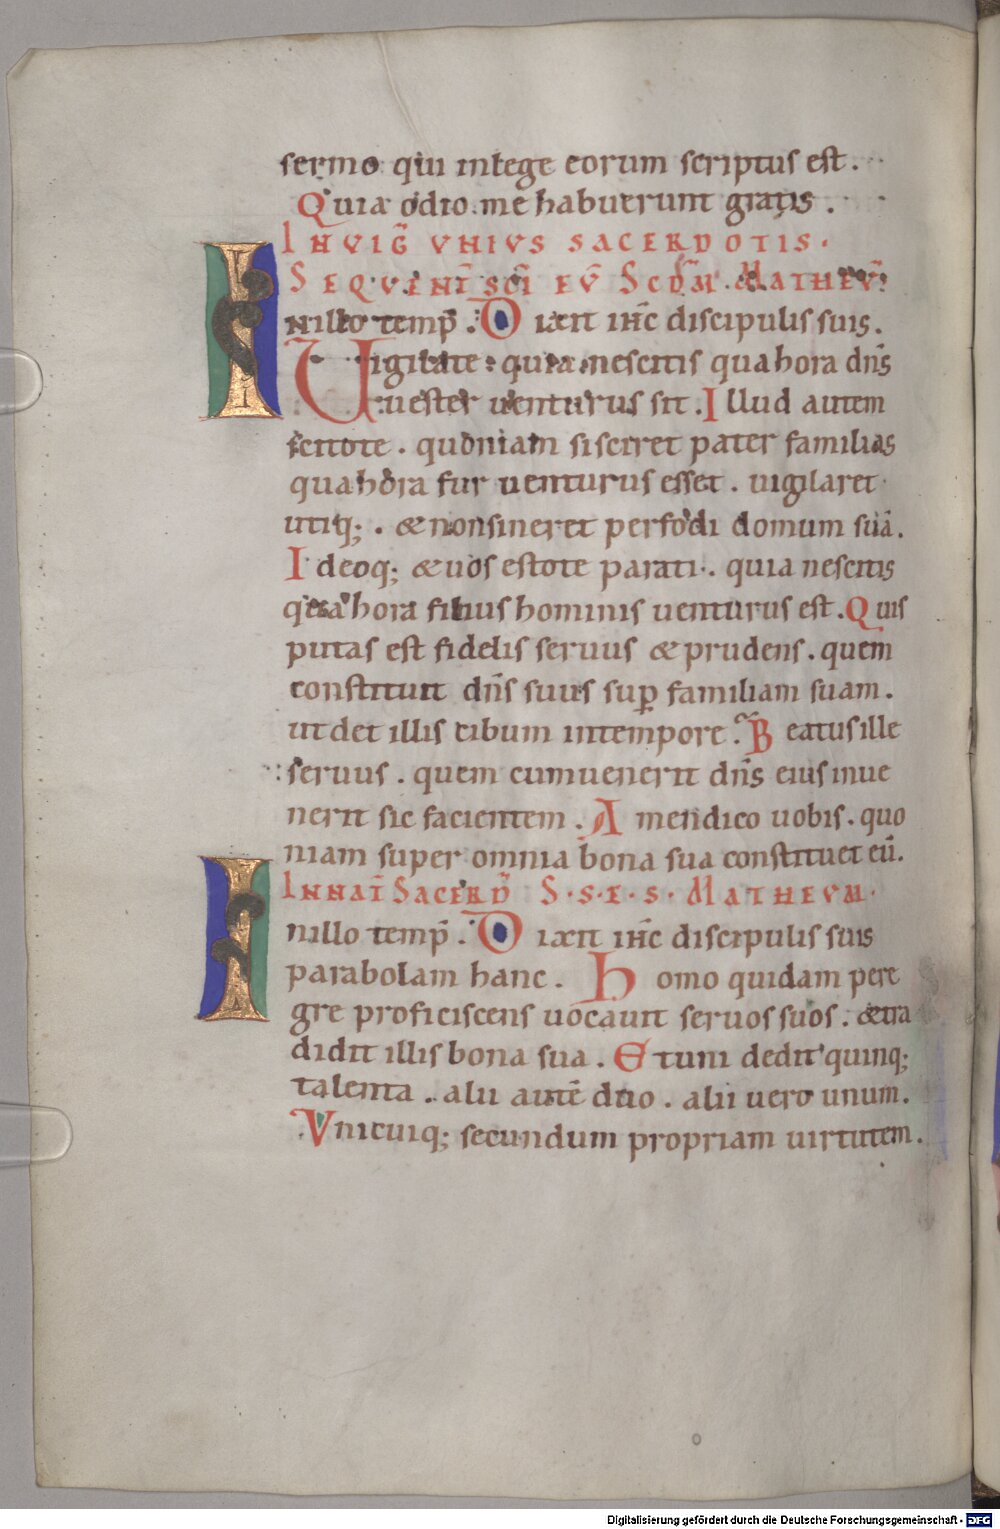 sermo qui inlege eorum scriptus est.
Quia odio me habuerunt gratis.
IN UIG̅ UNIUS SACERDOTIS.
SEQUENT̅ SC̅I EU̅ SCD̅M MATHEU̅:
INillo temp̅. Dixit ih̅c discipulis suis.
Uigilate: quia nescitis qua hora dn̅s
uester uenturus sit. Illud autem
scitote. quoniam si sciret pater familias
qua hora fur uenturus esset. uigilaret
utiq;. & non sineret perfodi domum suā.
Ideoq; & uos estote parati. quia nescitis
qua hora filius hominis uenturus est. Quis
putas est fidelis seruus & prudens. quem
constituit dn̅s suus sup̱ familiam suam.
ut det illis cibum intempore. Beatus ille
seruus. quem cumuenerit dn̅s eius inue
nerit sic facientem. Amen dico uobis. quo
niam super omnia bona sua constituet eū.
IN NAT̅ SACERD̅ S·S·E·S· MATHEUM·
INillo temp̅. Dixit ih̅c discipulis suis
parabolam hanc. Homo quidam pere
gre proficiscens uocauit seruos suos. & tra
didit illis bona sua. Et uni dedit quinq;
talenta. alii autē duo. alii uero unum.
Unicuiq; secundum propriam uirtutem.
Digitalisierung gefördert durch die Deutsche Forschungsgemeinschaft - DFG